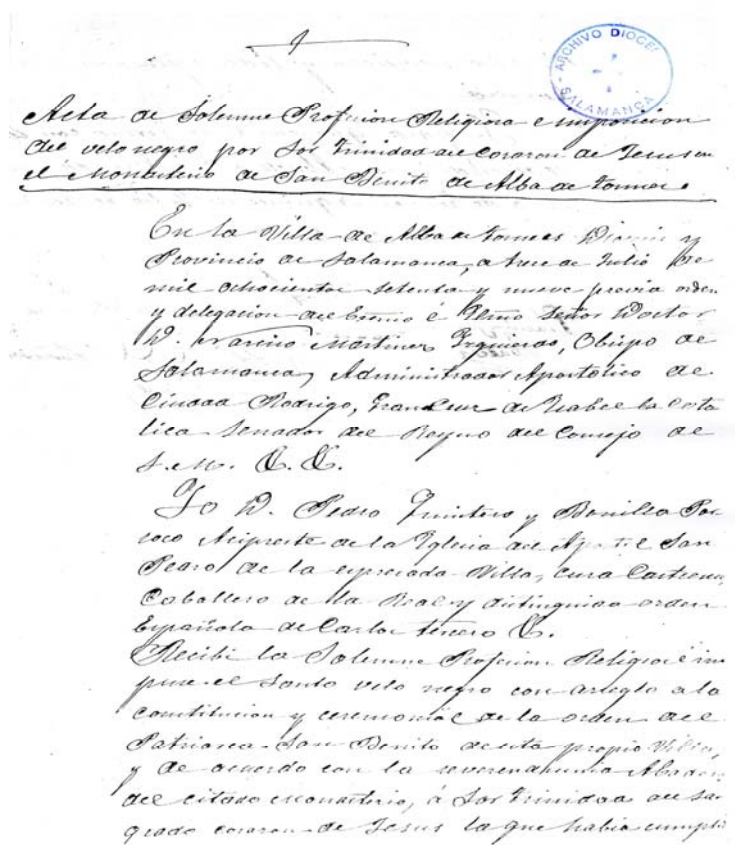 ARCHIVO DIOCES
SALAMANCA
Acta de Solemne Profesion Religiosa e imposicion
del velo negro por Sor Trinidad del Corazon de Jesus en
el Monasterio de San Benito de Alba de Tormes.
En la Villa de Alba de Tormes y
Provincia de Salamanca, a trece de Julio de
mil ochocientos setenta y nueve previa orden
y delegacion del Excmo é Ylmo Señor Doctor
D. Narciso Martinez Yzquierdo, Obispo de
Salamanca, Administrador Apostolico de
Ciudad Rodrigo, Gran Cruz de Ysabel la Cato
lica Senador del Reyno del Consejo de
S. M. &. &.
Yo D. Pedro y Bonilla Par
roco Arcipreste de la Yglesia del San
Pedro de la espresada Villa, cura Castrense,
Caballero de la Real y distinguida orden
Española de Carlos tercero &.
Recibi la Solemne Profesion Religiosa é im
puse el Santo velo negro con arreglo a la
constitucion y ceremonial de la orden del
Patriarca San Benito de esta propia Villa,
y de acuerdo con la reverendisima Abadesa
del citado monasterio, á Sor Trinidad del Sa
grado corazon de Jesus la que habia cumpli